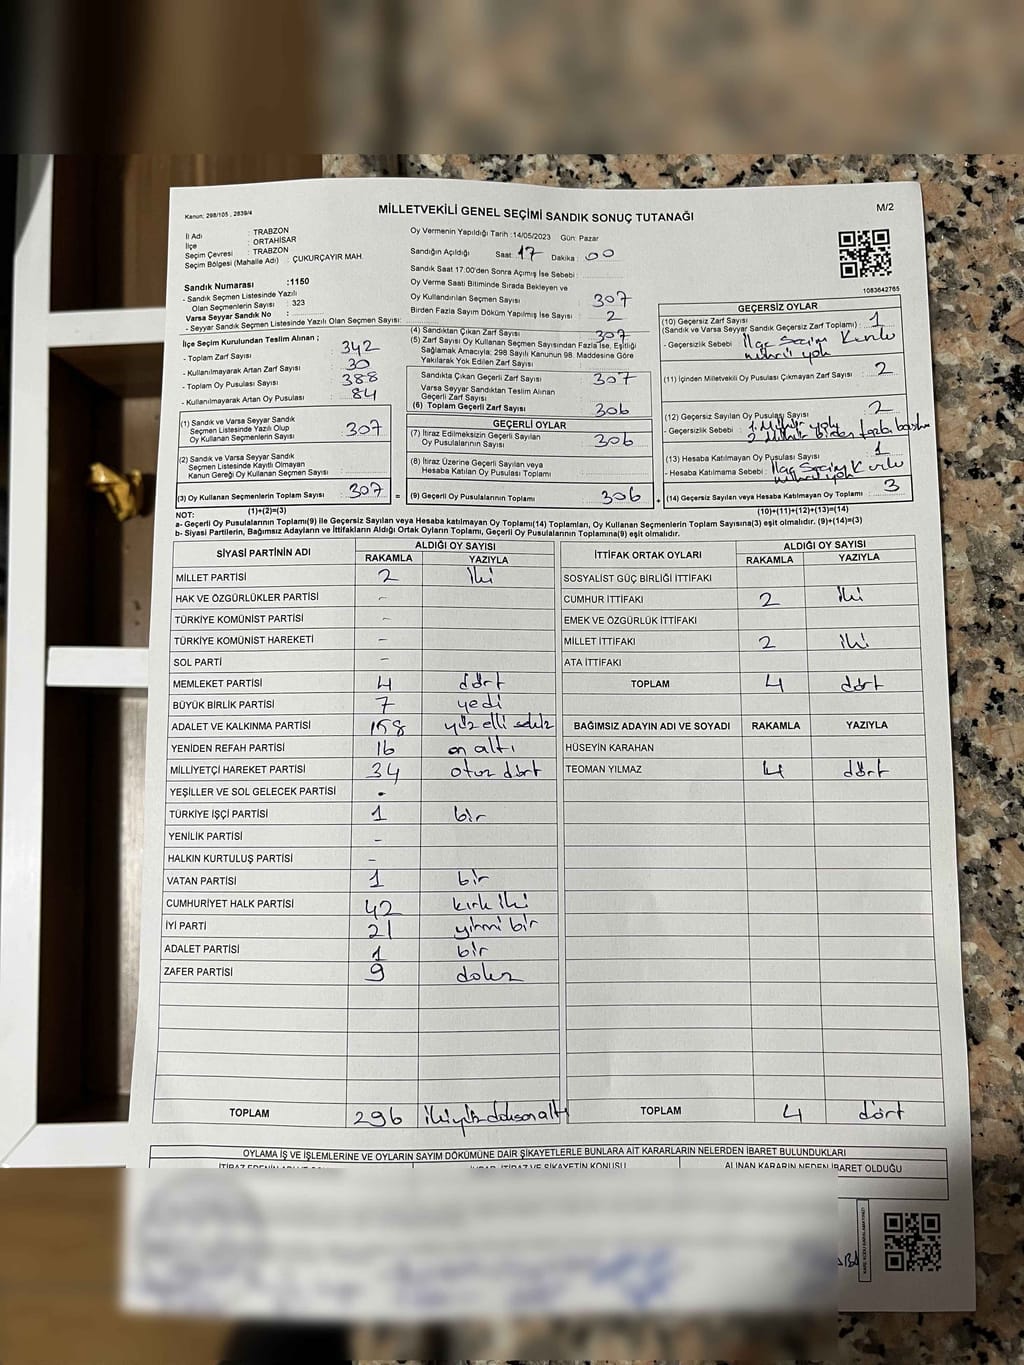 Kanun; 298/105 , 2839/4
MİLLETVEKİLİ GENEL SEÇİMİ SANDIK SONUÇ TUTANAĞI
M/2
İl Adı : TRABZON
İlçe : ORTAHİSAR
Seçim Çevresi : TRABZON
Seçim Bölgesi (Mahalle Adı) : ÇUKURÇAYIR MAH.
Sandık Numarası :1150
- Sandık Seçmen Listesinde Yazılı
Olan Seçmenlerin Sayısı : 323
Varsa Seyyar Sandık No :
- Seyyar Sandık Seçmen Listesinde Yazılı Olan Seçmen Sayısı:
İlçe Seçim Kurulundan Teslim Alınan ;
- Toplam Zarf Sayısı : 342
- Kullanılmayarak Artan Zarf Sayısı : 30
- Toplam Oy Pusulası Sayısı : 388
- Kullanılmayarak Artan Oy Pusulası : 84
(1) Sandık ve Varsa Seyyar Sandık
Seçmen Listesinde Yazılı Olup
Oy Kullanan Seçmenlerin Sayısı : 307
(2) Sandık ve Varsa Seyyar Sandık
Seçmen Listesinde Kayıtlı Olmayan
Kanun Gereği Oy Kullanan Seçmen Sayısı :
(3) Oy Kullanan Seçmenlerin Toplam Sayısı : 307
(1)+(2)=(3)
Oy Vermenin Yapıldığı Tarih :14/05/2023 Gün: Pazar
Sandığın Açıldığı Saat: 17 Dakika : 00
Sandık Saat 17.00'den Sonra Açımış İse Sebebi :
Oy Verme Saati Bitiminde Sırada Bekleyen ve
Oy Kullandırılan Seçmen Sayısı : 307
Birden Fazla Sayım Döküm Yapılmış İse Sayısı : 2
(4) Sandıktan Çıkan Zarf Sayısı : 307
(5) Zarf Sayısı Oy Kullanan Seçmen Sayısından Fazla İse, Eşitliği
Sağlamak Amacıyla; 298 Sayılı Kanunun 98. Maddesine Göre
Yakılarak Yok Edilen Zarf Sayısı :
Sandıkta Çıkan Geçerli Zarf Sayısı : 307
Varsa Seyyar Sandıktan Teslim Alınan
Geçerli Zarf Sayısı :
(6) Toplam Geçerli Zarf Sayısı : 306
GEÇERLİ OYLAR
(7) İtiraz Edilmeksizin Geçerli Sayılan
Oy Pusulalarının Sayısı : 306
(8) İtiraz Üzerine Geçerli Sayılan veya
Hesaba Katılan Oy Pusulası Toplamı :
= (9) Geçerli Oy Pusulalarının Toplamı : 306 +
1083642765
GEÇERSİZ OYLAR
(10) Geçersiz Zarf Sayısı
(Sandık ve Varsa Seyyar Sandık Geçersiz Zarf Toplamı) : 1
- Geçersizlik Sebebi : İlçe Seçim Kurulu
mührü yok
(11) İçinden Milletvekili Oy Pusulası Çıkmayan Zarf Sayısı : 2
(12) Geçersiz Sayılan Oy Pusulası Sayısı : 2
- Geçersizlik Sebebi : 1. Mühür yok
2 Mühür birden fazla
(13) Hesaba Katılmayan Oy Pusulası Sayısı : 1
- Hesaba Katılmama Sebebi : İlçe Seçim Kurulu
mührü yok
(14) Geçersiz Sayılan veya Hesaba Katılmayan Oy Toplamı : 3
(10)+(11)+(12)+(13)=(14)
NOT:
a- Geçerli Oy Pusulalarının Toplamı(9) ile Geçersiz Sayılan veya Hesaba katılmayan Oy Toplamı(14) Toplamları, Oy Kullanan Seçmenlerin Toplam Sayısına(3) eşit olmalıdır. (9)+(14)=(3)
b- Siyasi Partilerin, Bağımsız Adayların ve İttifakların Aldığı Ortak Oyların Toplamı, Geçerli Oy Pusulalarının Toplamına(9) eşit olmalıdır.
SİYASİ PARTİNİN ADI ALDIĞI OY SAYISI
RAKAMLA YAZIYLA
MİLLET PARTİSİ 2 iki
HAK VE ÖZGÜRLÜKLER PARTİSİ -
TÜRKİYE KOMÜNİST PARTİSİ -
TÜRKİYE KOMÜNİST HAREKETİ -
SOL PARTİ -
MEMLEKET PARTİSİ 4 dört
BÜYÜK BİRLİK PARTİSİ 7 yedi
ADALET VE KALKINMA PARTİSİ 158 yüz elli sekiz
YENİDEN REFAH PARTİSİ 16 on altı
MİLLİYETÇİ HAREKET PARTİSİ 34 otuz dört
YEŞİLLER VE SOL GELECEK PARTİSİ -
TÜRKİYE İŞÇİ PARTİSİ 1 bir
YENİLİK PARTİSİ -
HALKIN KURTULUŞ PARTİSİ -
VATAN PARTİSİ 1 bir
CUMHURİYET HALK PARTİSİ 42 kırk iki
İYİ PARTİ 21 yirmi bir
ADALET PARTİSİ 1 bir
ZAFER PARTİSİ 9 dokuz
TOPLAM 296 ikiyüz doksan altı
İTTİFAK ORTAK OYLARI ALDIĞI OY SAYISI
RAKAMLA YAZIYLA
SOSYALİST GÜÇ BİRLİĞİ İTTİFAKI
CUMHUR İTTİFAKI 2 iki
EMEK VE ÖZGÜRLÜK İTTİFAKI
MİLLET İTTİFAKI 2 iki
ATA İTTİFAKI
TOPLAM 4 dört
BAĞIMSIZ ADAYIN ADI VE SOYADI RAKAMLA YAZIYLA
HÜSEYİN KARAHAN
TEOMAN YILMAZ 4 dört
TOPLAM 4 dört
OYLAMA İŞ VE İŞLEMLERİNE VE OYLARIN SAYIM DÖKÜMÜNE DAİR ŞİKAYETLERLE BUNLARA AİT KARARLARIN NELERDEN İBARET BULUNDUKLARI
ALINAN KARARIN NEDEN İBARET OLDUĞU